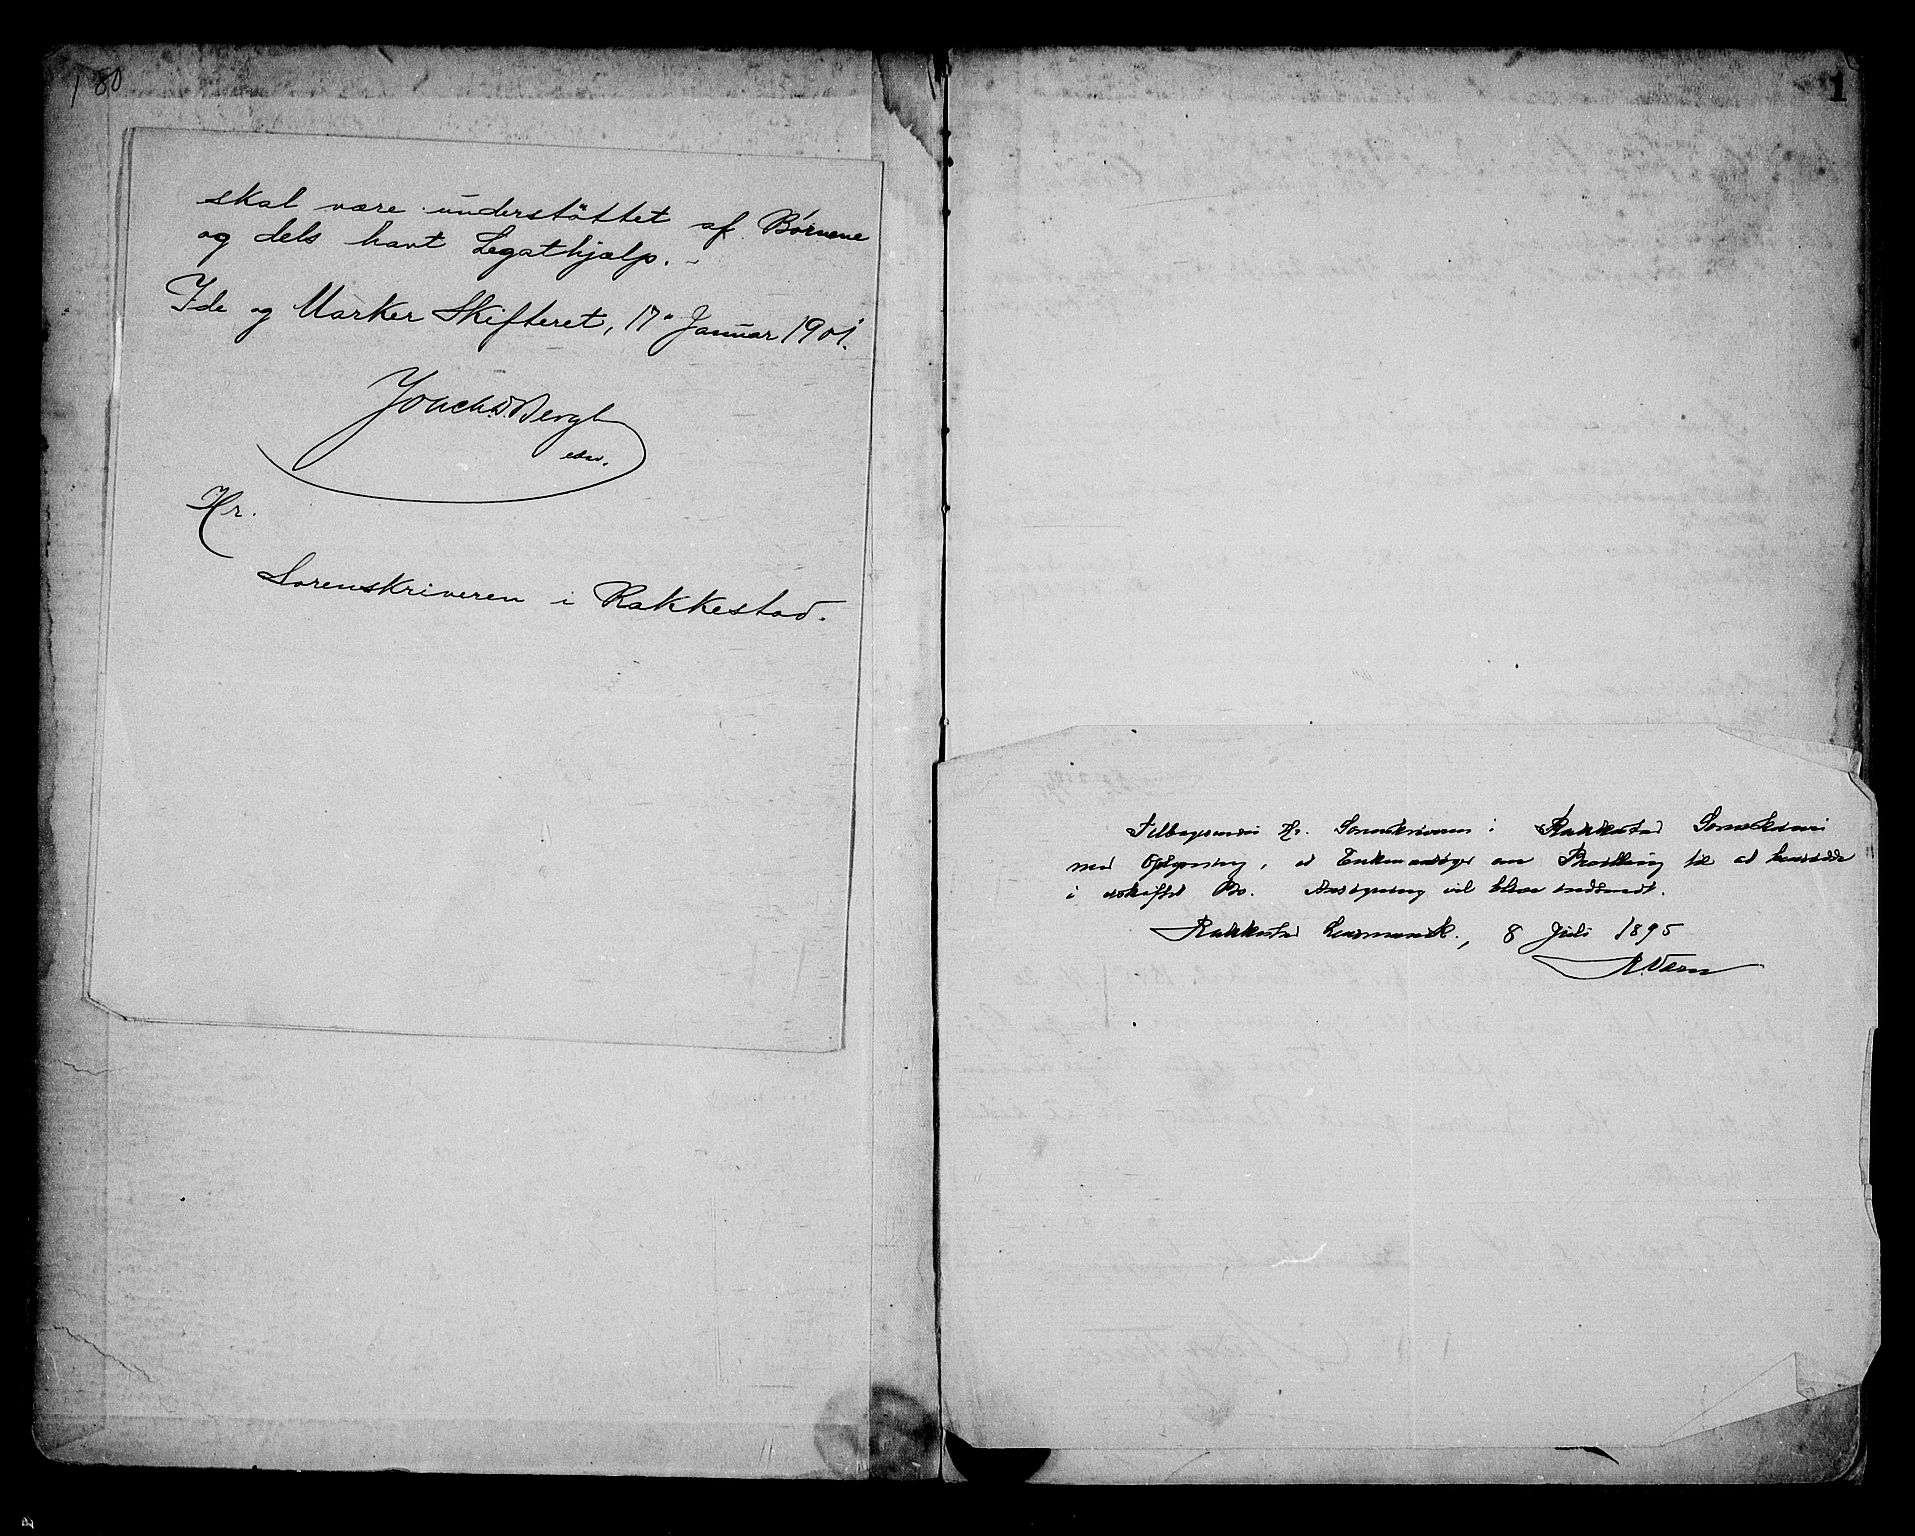 180
skal være understöttet af Børnene
og dels havt Legathjælp. -
Ide og Marker Skifteret, 17 Januar 1901.
Joach. Bergh
Hr.
Sorenskriveren i Rakkestad.
1
Tilbagesendes Hr. Sorenskriveren i Rakkestad Sorenskriveri
med Oplysning, at Enken ansöger om Bevilling til at hensidde
i uskiftet Bo. Ansögning vil blive indsendt.
Rakkestad Lensmansk., 8 Juli 1895